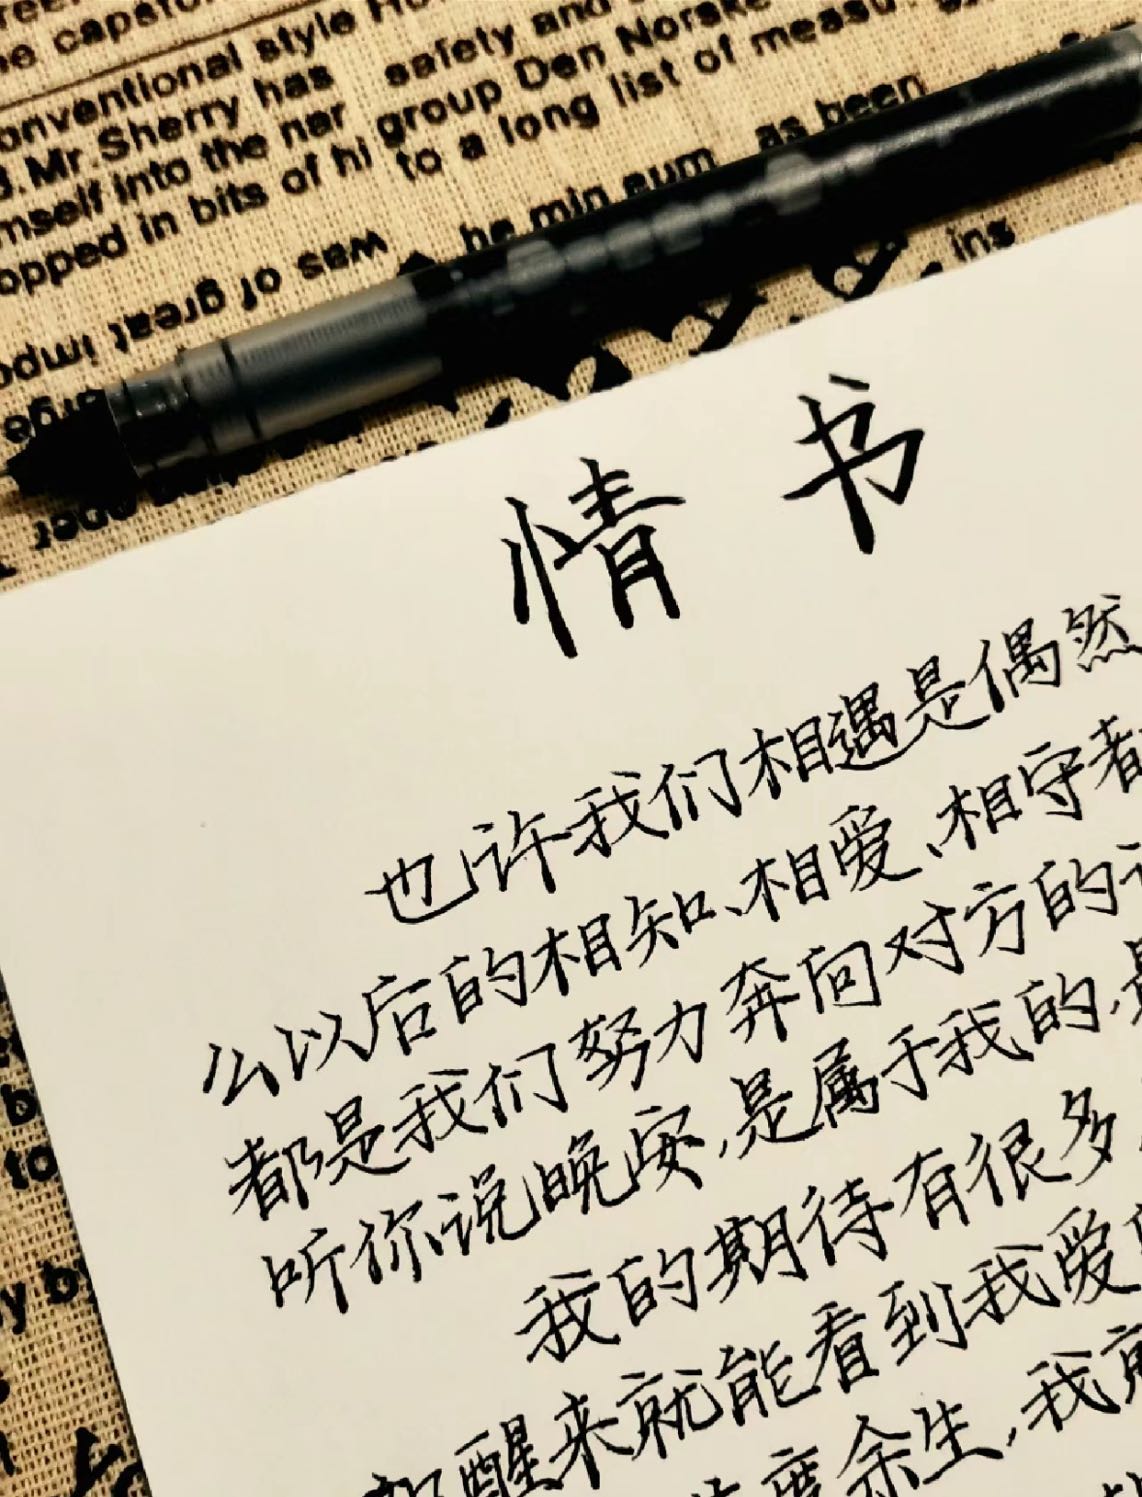 conventional style
.Mr.Sherry has safety and
mself into the nar group Den Norske
opped in bits of hi to a long list of
was of great
he min eum as been
ins
情书
也许我们相遇是偶然
么以后的相知、相爱、相守都
都是我们努力奔向对方的
听你说晚安,是属于我的,
我的期待有很多
醒来就能看到我爱
度余生,我